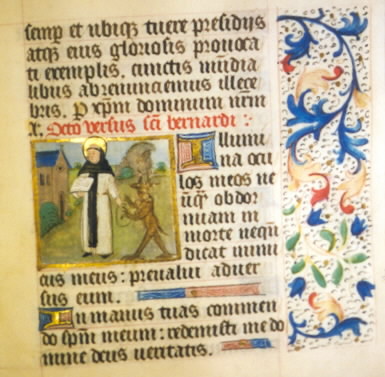 semp et ubiqz tuere presidijs
atqz eius gloriosis prouoca
ti exemplis. cunctis mūdia
libus abrenunciemus illece
bris. P xpm dominum nrm
Octo versus sci bernardi :
Illumi
na ocu
los meos ne
ūqz obdor
miam in
morte nequā
dicat inimi
cus meus : preualui aduer
sus eum.
In manus tuas commen
do spm meum : redemisti me do
mine deus ueritatis.